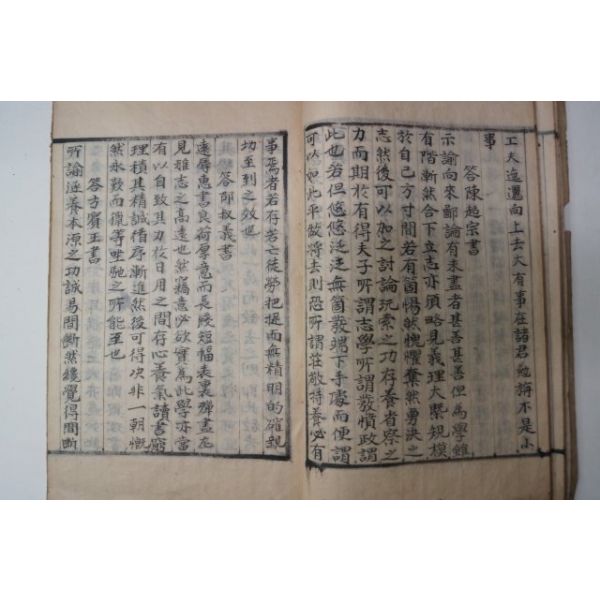 工夫迤邐向上去大有事在諸君勉旃不是小
事
答陳超宗書
示諭向來鄙論有未盡者甚善甚善但為學雖
有階漸然合下立志亦須略見義理大槩規模
於自己方寸間若有箇惕然愧懼奮然勇決之
志然後可以加之討論玩索之功存養省察之
力而期於有得夫子所謂志學所謂發憤政謂
此也若但悠悠泛泛無箇發端下手處而便謂
可以如此平做將去則恐所謂莊敬持養必有
事焉者若存若亡徒勞把捉而無精明的確親
切至到之效也
答邵叔義書
遠辱惠書良荷厚意而長牋短幅表裏殫盡左
見雅志之高遠也然竊意必欲實為此學亦當
有以自致其力於日用之間存心養氣讀書窮
理積其精誠循序漸進然後可得決非一朝慨
然永歎而躐等坐馳之所能至也
答方賓王書
所諭涵養本源之功誠易間斷然纔覺得間斷